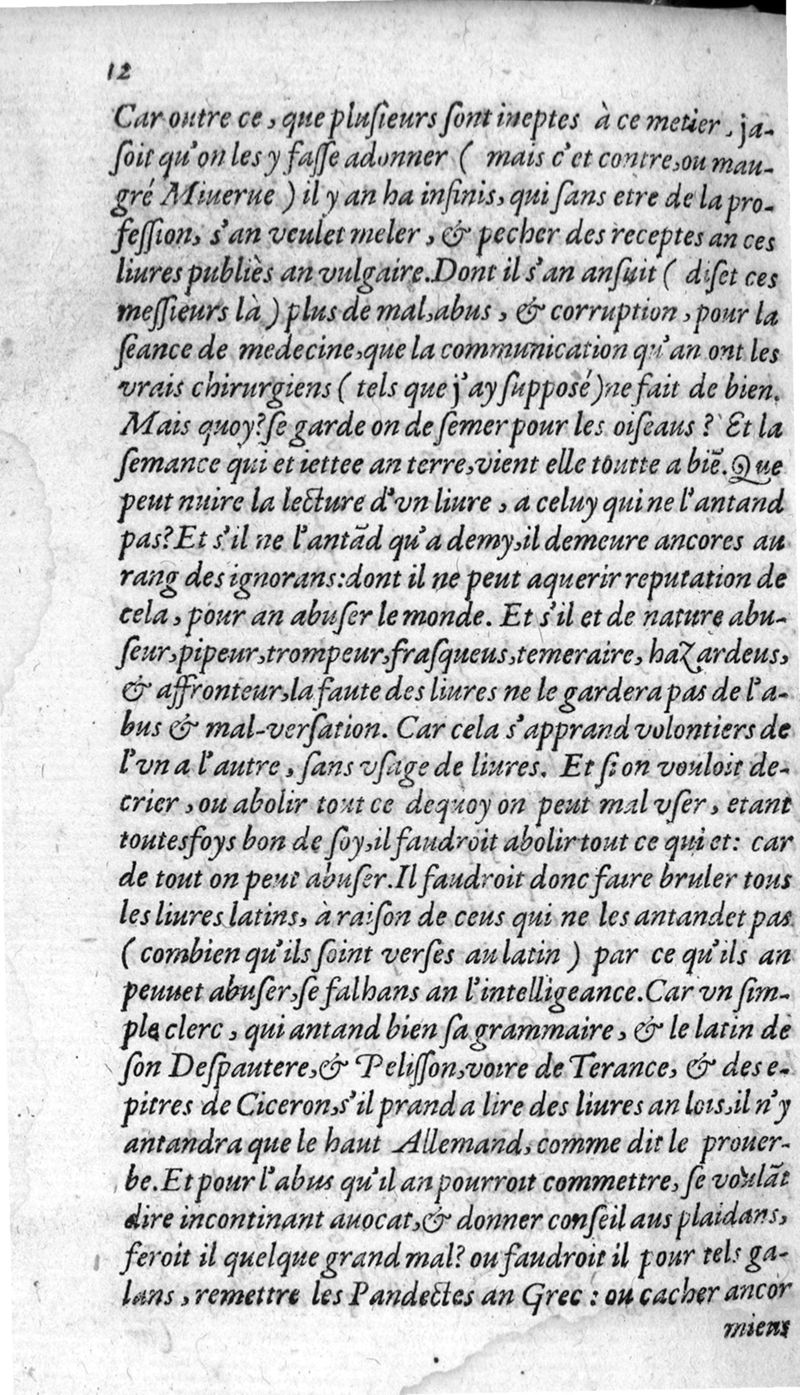 12
Car outre ce, que pluſieurs ſont ineptes à ce metier, ja-
ſoit qu'on les y faſſe adonner ( mais c'et contre, ou mau-
gré Minerue ) il y an ha infinis, qui ſans etre de la pro-
feſſion, s'an veulet meler, & pecher des receptes an ces
liures publiès an vulgaire. Dont il s'an anſuit ( diſet ces
meſſieurs là ) plus de mal, abus, & corruption, pour la
ſeance de medecine, que la communication qu'an ont les
vrais chirurgiens ( tels que j'ay ſuppoſé ) ne fait de bien.
Mais quoy? ſe garde on de ſemer pour les oiſeaus ? Et la
ſemance qui et iettee an terre, vient elle toutte a biē. Que
peut nuire la lecture d'vn liure, a celuy qui ne l'antand
pas? Et s'il ne l'antād qu'a demy, il demeure ancores au
rang des ignorans: dont il ne peut aquerir reputation de
cela, pour an abuſer le monde. Et s'il et de nature abu-
ſeur, pipeur, trompeur, fraſqueus, temeraire, hazardeus,
& affronteur, la faute des liures ne le gardera pas de l'a-
bus & mal-verſation. Car cela s'apprand volontiers de
l'vn a l'autre, ſans vſage de liures. Et ſi on vouloit de-
crier, ou abolir tout ce dequoy on peut mal vſer, etant
toutesfoys bon de ſoy, il faudroit abolir tout ce qui et: car
de tout on peut abuſer. Il faudroit donc faire bruler tous
les liures latins, à raiſon de ceus qui ne les antandet pas
( combien qu'ils ſoint verſes au latin ) par ce qu'ils an
peuuet abuſer, ſe falhans an l'intelligeance. Car vn ſim-
ple clerc, qui antand bien ſa grammaire, & le latin de
ſon Deſpautere, & Peliſſon, voire de Terance, & des e-
pitres de Ciceron, s'il prand a lire des liures an lois, il n'y
antandra que le haut Allemand, comme dit le prouer-
be. Et pour l'abus qu'il an pourroit commettre, ſe voulāt
dire incontinant auocat, & donner conſeil aus plaidans,
feroit il quelque grand mal? ou faudroit il pour tels ga-
lans, remettre les Pandectes an Grec : ou cacher ancor
mieus